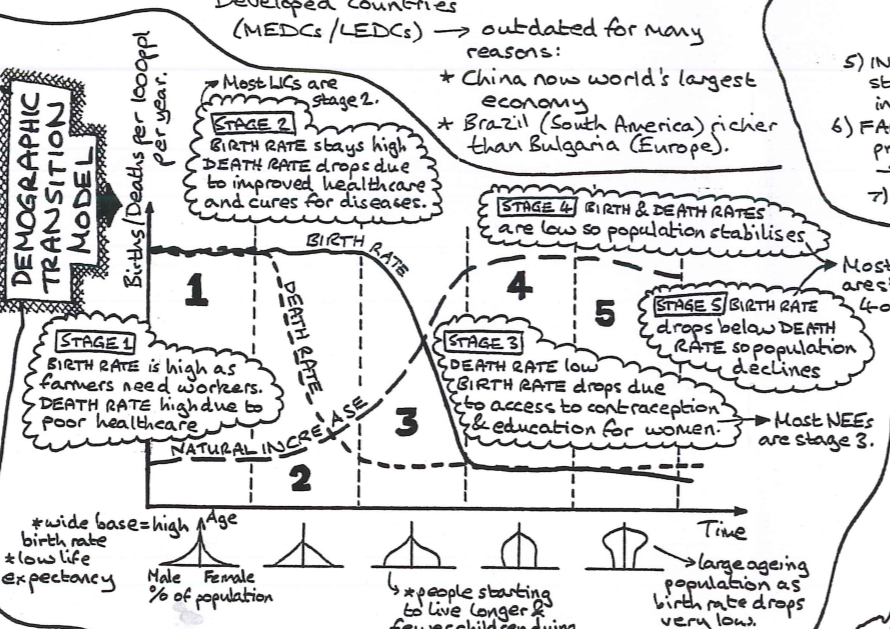 Developed Countries
(MEDCs/LEDCs) → outdated for many
reasons:
* China now world's largest
economy
* Brazil (South America) richer
than Bulgaria (Europe).
5) IN
6) FA
7)
DEMOGRAPHIC
TRANSITION
MODEL
Births/Deaths per 1000ppl
per year.
→ Most LICs are
stage 2.
STAGE 2
BIRTH RATE stays high
DEATH RATE drops due
to improved healthcare
and cures for diseases.
STAGE 4 BIRTH & DEATH RATES
are low so population stabilises
Most
STAGE 5 BIRTH RATE
drops below DEATH
RATE so population
declines
BIRTH RATE
DEATH RATE
NATURAL INCREASE
1
2
3
4
5
STAGE 1
BIRTH RATE is high as
farmers need workers.
DEATH RATE high due to
poor healthcare
STAGE 3
DEATH RATE low
BIRTH RATE drops due
to access to contraception
& education for women.
→ Most NEEs
are stage 3.
Time
* wide base = high
birth rate
* low life
expectancy
Age
Male Female
% of population
* people starting
to live longer &
fewer children dying
large ageing
population as
birth rate drops
very low.